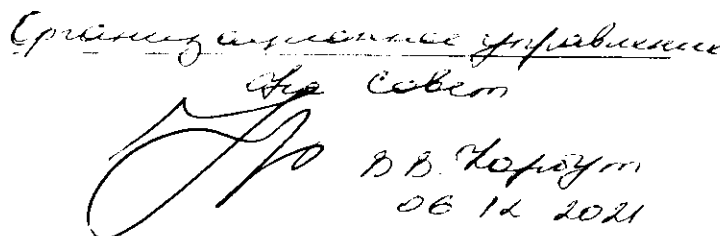 Организационное управление
На Совет
В В. Нарбут
06 12 2021